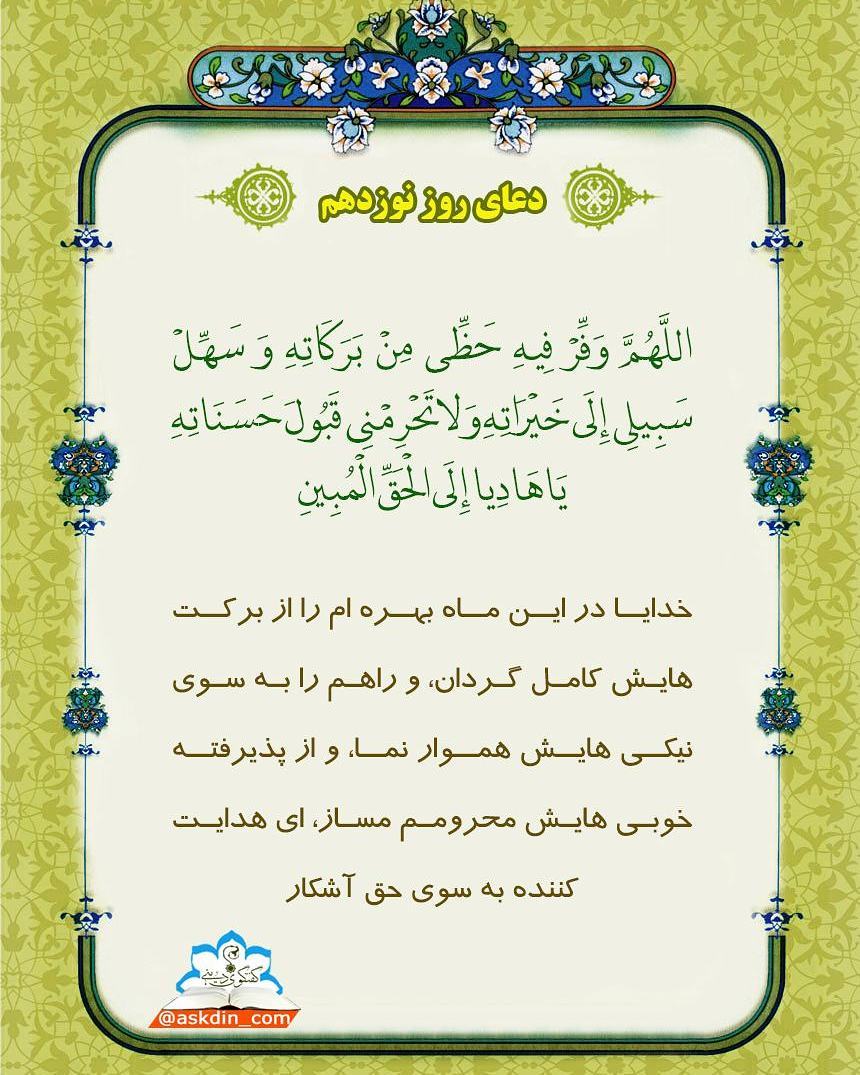 دعای روز نوزدهم
اللَّهُمَّ وَفِّرْ فِيهِ حَظِّي مِنْ بَرَكَاتِهِ وَ سَهِّلْ
سَبِيلِي إِلَى خَيْرَاتِهِ وَ لا تَحْرِمْنِي قَبُولَ حَسَنَاتِهِ
يَا هَادِيا إِلَى الْحَقِّ الْمُبِينِ
خدایا در این ماه بهره ام را از برکت
هایش کامل گردان، و راهم را به سوی
نیکی هایش هموار نما، و از پذیرفته
خوبی هایش محرومم مساز، ای هدایت
کننده به سوی حق آشکار
گفتگوی دینی
@askdin_com